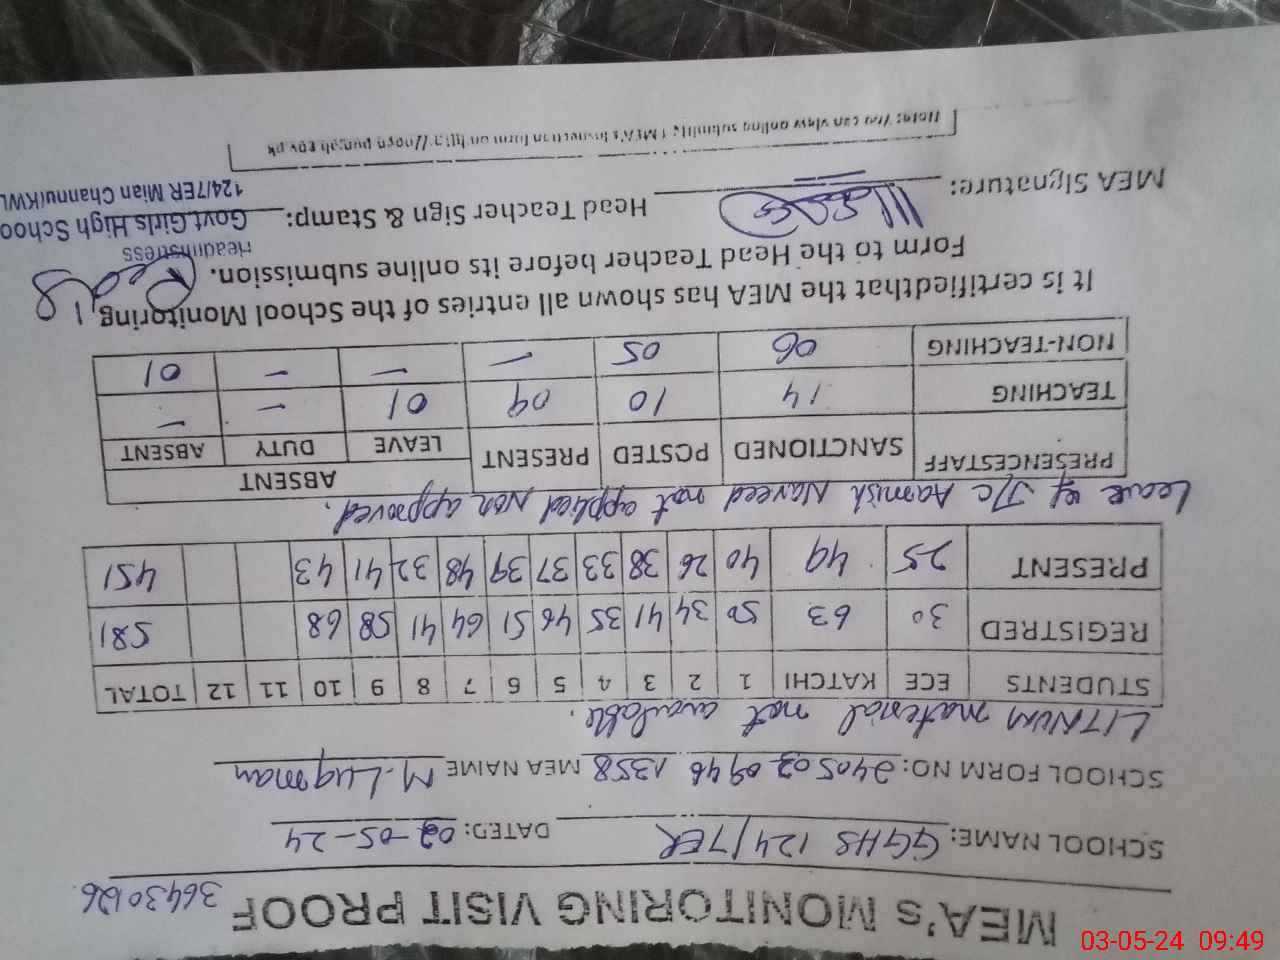 MEA's MONITORING VISIT PROOF
36430126
SCHOOL NAME: GGHS 124/7ER DATED: 03-05-24
SCHOOL FORM NO: 240503 0946 1358 MEA NAME M. Luqman
LITNUM material not available.
STUDENTS ECE KATCHI 1 2 3 4 5 6 7 8 9 10 11 12 TOTAL
REGISTRED 30 63 50 34 41 35 46 51 64 41 58 68 581
PRESENT 25 49 40 26 38 33 37 39 48 32 41 43 451
Leave of T/c Naveed not applied Non approved.
PRESENCESTAFF SANCTIONED POSTED PRESENT ABSENT
LEAVE DUTY ABSENT
TEACHING 14 10 09 01 – –
NON-TEACHING 06 05 – – – 01
It is certifiedthat the MEA has shown all entries of the School Monitoring
Form to the Head Teacher before its online submission.
Headmistress
MEA Signature: Head Teacher Sign & Stamp: Govt.Girls High Schoo
124/7ER Mian Channu(KWL
Note: You can view online submitted MEA's inspection form on
03-05-24 09:49